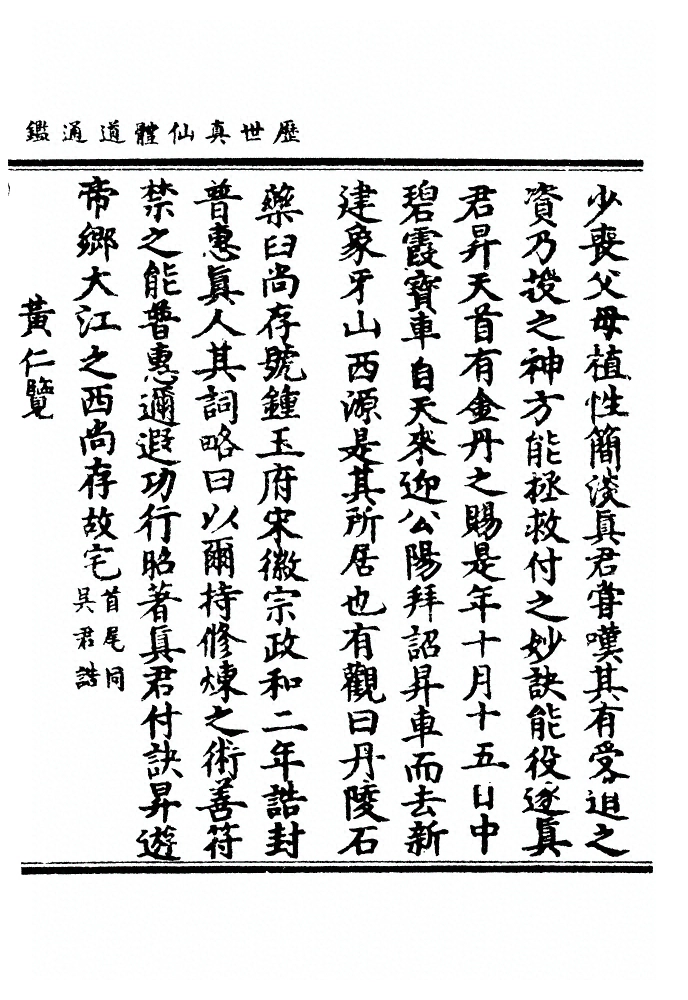 歷世真仙體道通鑑
少喪父母植性簡淡眞君嘗嘆其有受道之
資乃授之神方能拯救付之妙訣能役逐眞
君昇天首有金丹之賜是年十月十五日中
碧霞寶車自天來迎公陽拜詔昇車而去新
建象牙山西源是其所居也有觀曰丹陵石
藥臼尚存號鍾玉府宋徽宗政和二年誥封
普惠眞人其詞略曰以爾持修煉之術善符
禁之能普惠邇遐功行昭著眞君付訣昇遊
帝鄉大江之西尚存故宅首尾同吳君誥
黃仁覽